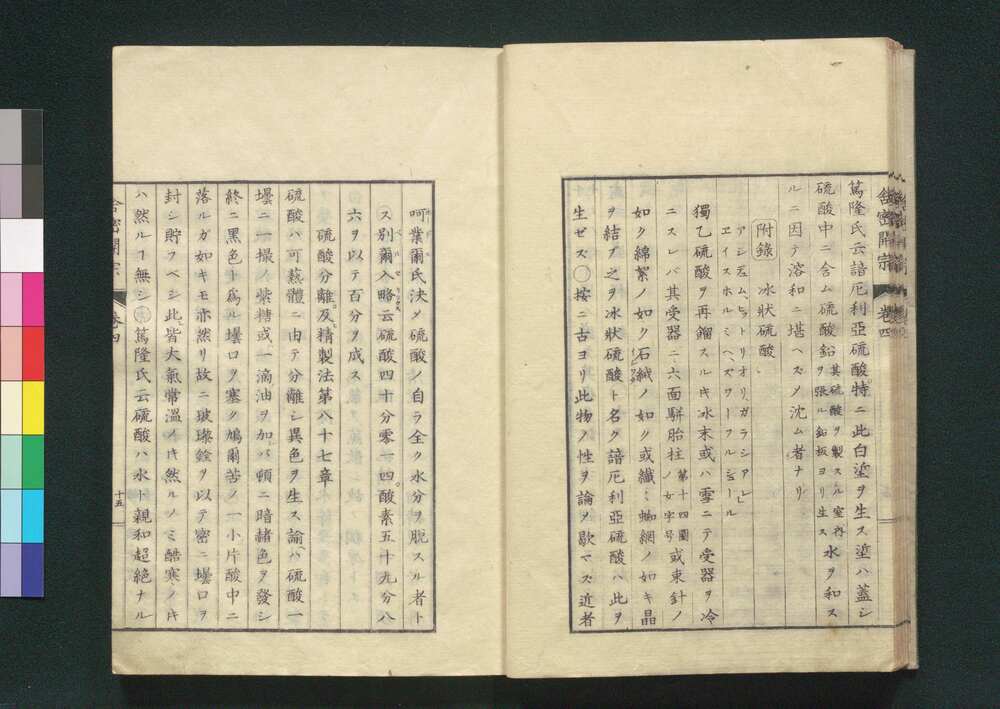 舎密開宗 巻四
篤隆氏云諳厄利亞硫酸特ニ此白塗ヲ生ス塗ハ蓋シ
硫酸中ニ含ム硫酸鉛其硫酸ヲ製スル室内ヲ張ル鉛板ヨリ生ス水ヲ和ス
ルニ因テ溶和ニ堪ヘズノ沈ム者ナリ
附錄 氷狀硫酸
獨乙硫酸ヲ再餾スルキ氷末或ハ雪ニテ受器ヲ冷
ニスレバ其受器ニ六面駢胎柱ノ如ク第十四圖女字号或束針ノ
如ク綿絮ノ如ク石絨ノ如ク或纎ミ蜘網ノ如キ晶
ヲ結ブ之ヲ氷狀硫酸ト名ク諳厄利亞硫酸ハ此ヲ
生ゼズ○按ニ古ヨリ此物ノ性ヲ論ヲ歇マズ近者
呵業爾氏決メ硫酸ノ自ラ全ク水分ヲ脱スル者ト
ス別爾入略云硫酸四十分零一四酸素五十九分八
六ヲ以テ百分ヲ成ス
硫酸分離及精製法第八十七章
硫酸ハ可蒸體ニ由テ分離シ異色ヲ生ス諭ハ硫酸一
壜ニ一撮ノ紫糖或一滴油ヲ加バ頓ニ暗赭色ヲ發シ
終ニ黒色ト爲ル壜口ヲ塞ク鳩爾苦ノ一小片酸中ニ
落ルガ如キモ亦然リ故ニ玻璨銓ヲ以テ密ニ壜口ヲ
封シ貯フベシ此皆大氣常溫ノキ然ルノミ酷寒ノキ
ハ然ルヿ無シ篤隆氏云硫酸ハ水ト親和超絶ナル
舎密開宗 巻四 十五